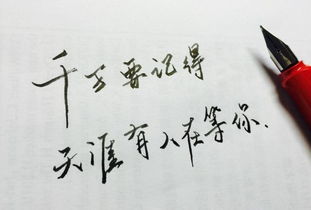 千万要记得
天涯有人在等你.